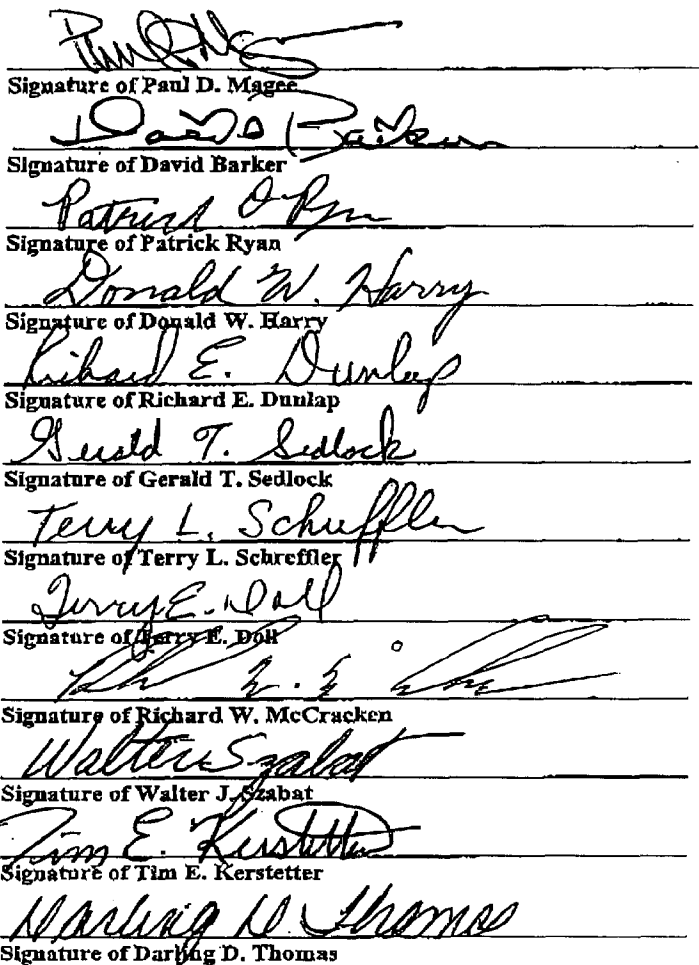 Signature of Paul D. Magee
David Barker
Signature of David Barker
Patrick D Ryan
Signature of Patrick Ryan
Donald W. Harry
Signature of Donald W. Harry
Richard E. Dunlap
Signature of Richard E. Dunlap
Gerald T. Sedlock
Signature of Gerald T. Sedlock
Terry L. Schreffler
Signature of Terry L. Schreffler
Terry E. Doll
Signature of Terry E. Doll
Signature of Richard W. McCracken
Walter Szabat
Signature of Walter J. Szabat
Tim E. Kerstetter
Signature of Tim E. Kerstetter
Darling D. Thomas
Signature of Darling D. Thomas